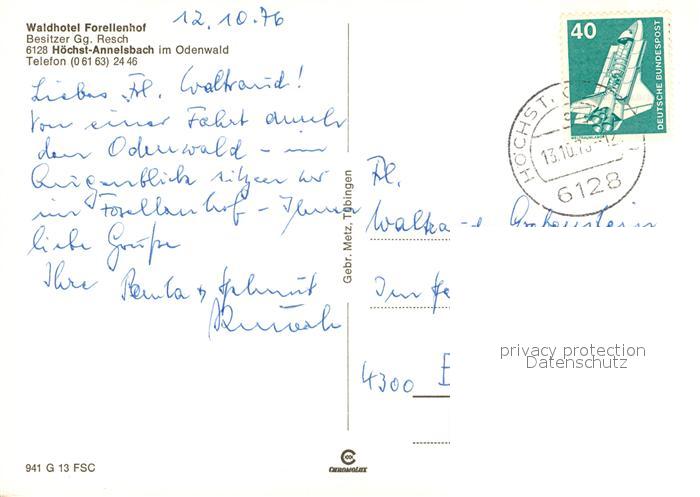 12.10.76
Waldhotel Forellenhof
Besitzer Gg. Resch
6128 Höchst-Annelsbach im Odenwald
Telefon (0 61 63) 24 46
Liebes Frl. Waltraud!
Von einer Fahrt durch
den Odenwald - im
Augenblick sitzen wir
im Forellenhof - Ihnen
liebe Grüße
Ihre
Gebr. Metz, Tübingen
40
DEUTSCHE BUNDESPOST
HÖCHST, O
13.10.76-12
6128
Frl.
4300
privacy protection
Datenschutz
941 G 13 FSC
CHROMOLUX